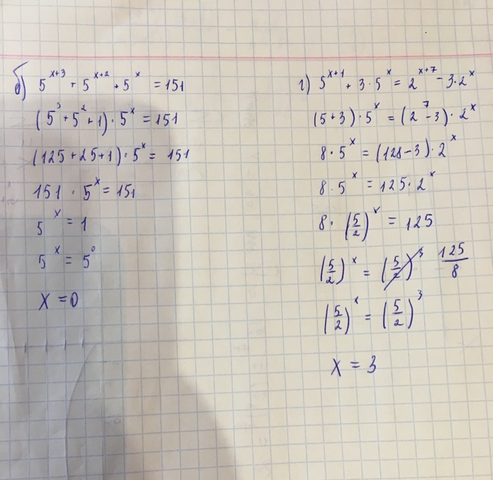 б) 5^(x+3) + 5^(x+2) + 5^x = 151
(5^3 + 5^2 + 1) · 5^x = 151
(125 + 25 + 1) · 5^x = 151
151 · 5^x = 151
5^x = 1
5^x = 5^0
x = 0
г) 5^(x+1) + 3 · 5^x = 2^(x+7) - 3 · 2^x
(5+3) · 5^x = (2^7 - 3) · 2^x
8 · 5^x = (128 - 3) · 2^x
8 · 5^x = 125 · 2^x
8 · (5/2)^x = 125
(5/2)^x = 125/8
(5/2)^x = (5/2)^3
x = 3